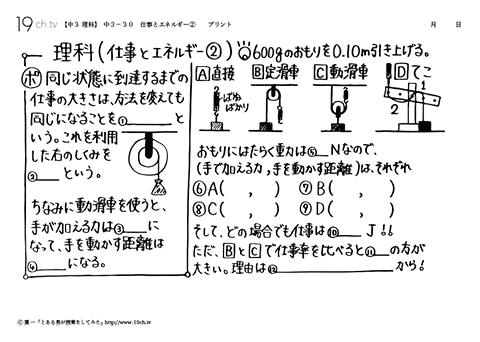 19ch.tv 【中3 理科】 中3－30 仕事とエネルギー② プリント 月 日
理科(仕事とエネルギー②)
ポ 同じ状態に到達するまでの
仕事の大きさは、方法を変えても
同じになることを①と
いう。これを利用
した右のしくみを
②という。
ちなみに動滑車を使うと、
手が加える力は③に
なって、手を動かす距離は
④になる。
600gのおもりを0.10m引き上げる。
A直接 B定滑車 C動滑車 Dてこ
ばね
ばかり
1
2
おもりにはたらく重力は⑤Nなので、
(手で加える力,手を動かす距離)は、それぞれ
⑥A( , ) ⑦B( , )
⑧C( , ) ⑨D( , )
そして、どの場合でも仕事は⑩J!!
ただ、BとCで仕事率を比べると⑪の方が
大きい。理由は⑫から!
©葉一「とある男が授業をしてみた」http://www.19ch.tv